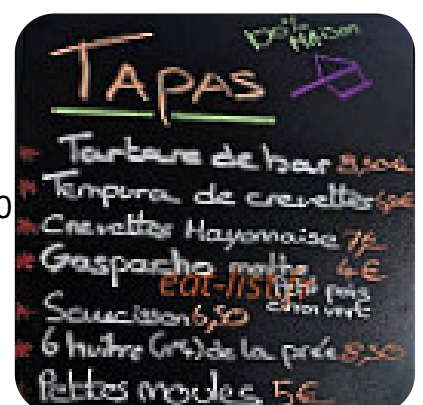 100% MAISON
TAPAS
Tartare de bar 8,50€
Tempura de crevettes
Crevettes Mayonnaise 7€
Gaspacho 4€
petit pois
citron vert
Saucisson 6,50
6 huître (n°4) de la prée 8,50
Petites moules 5€
eat-list.fr
0